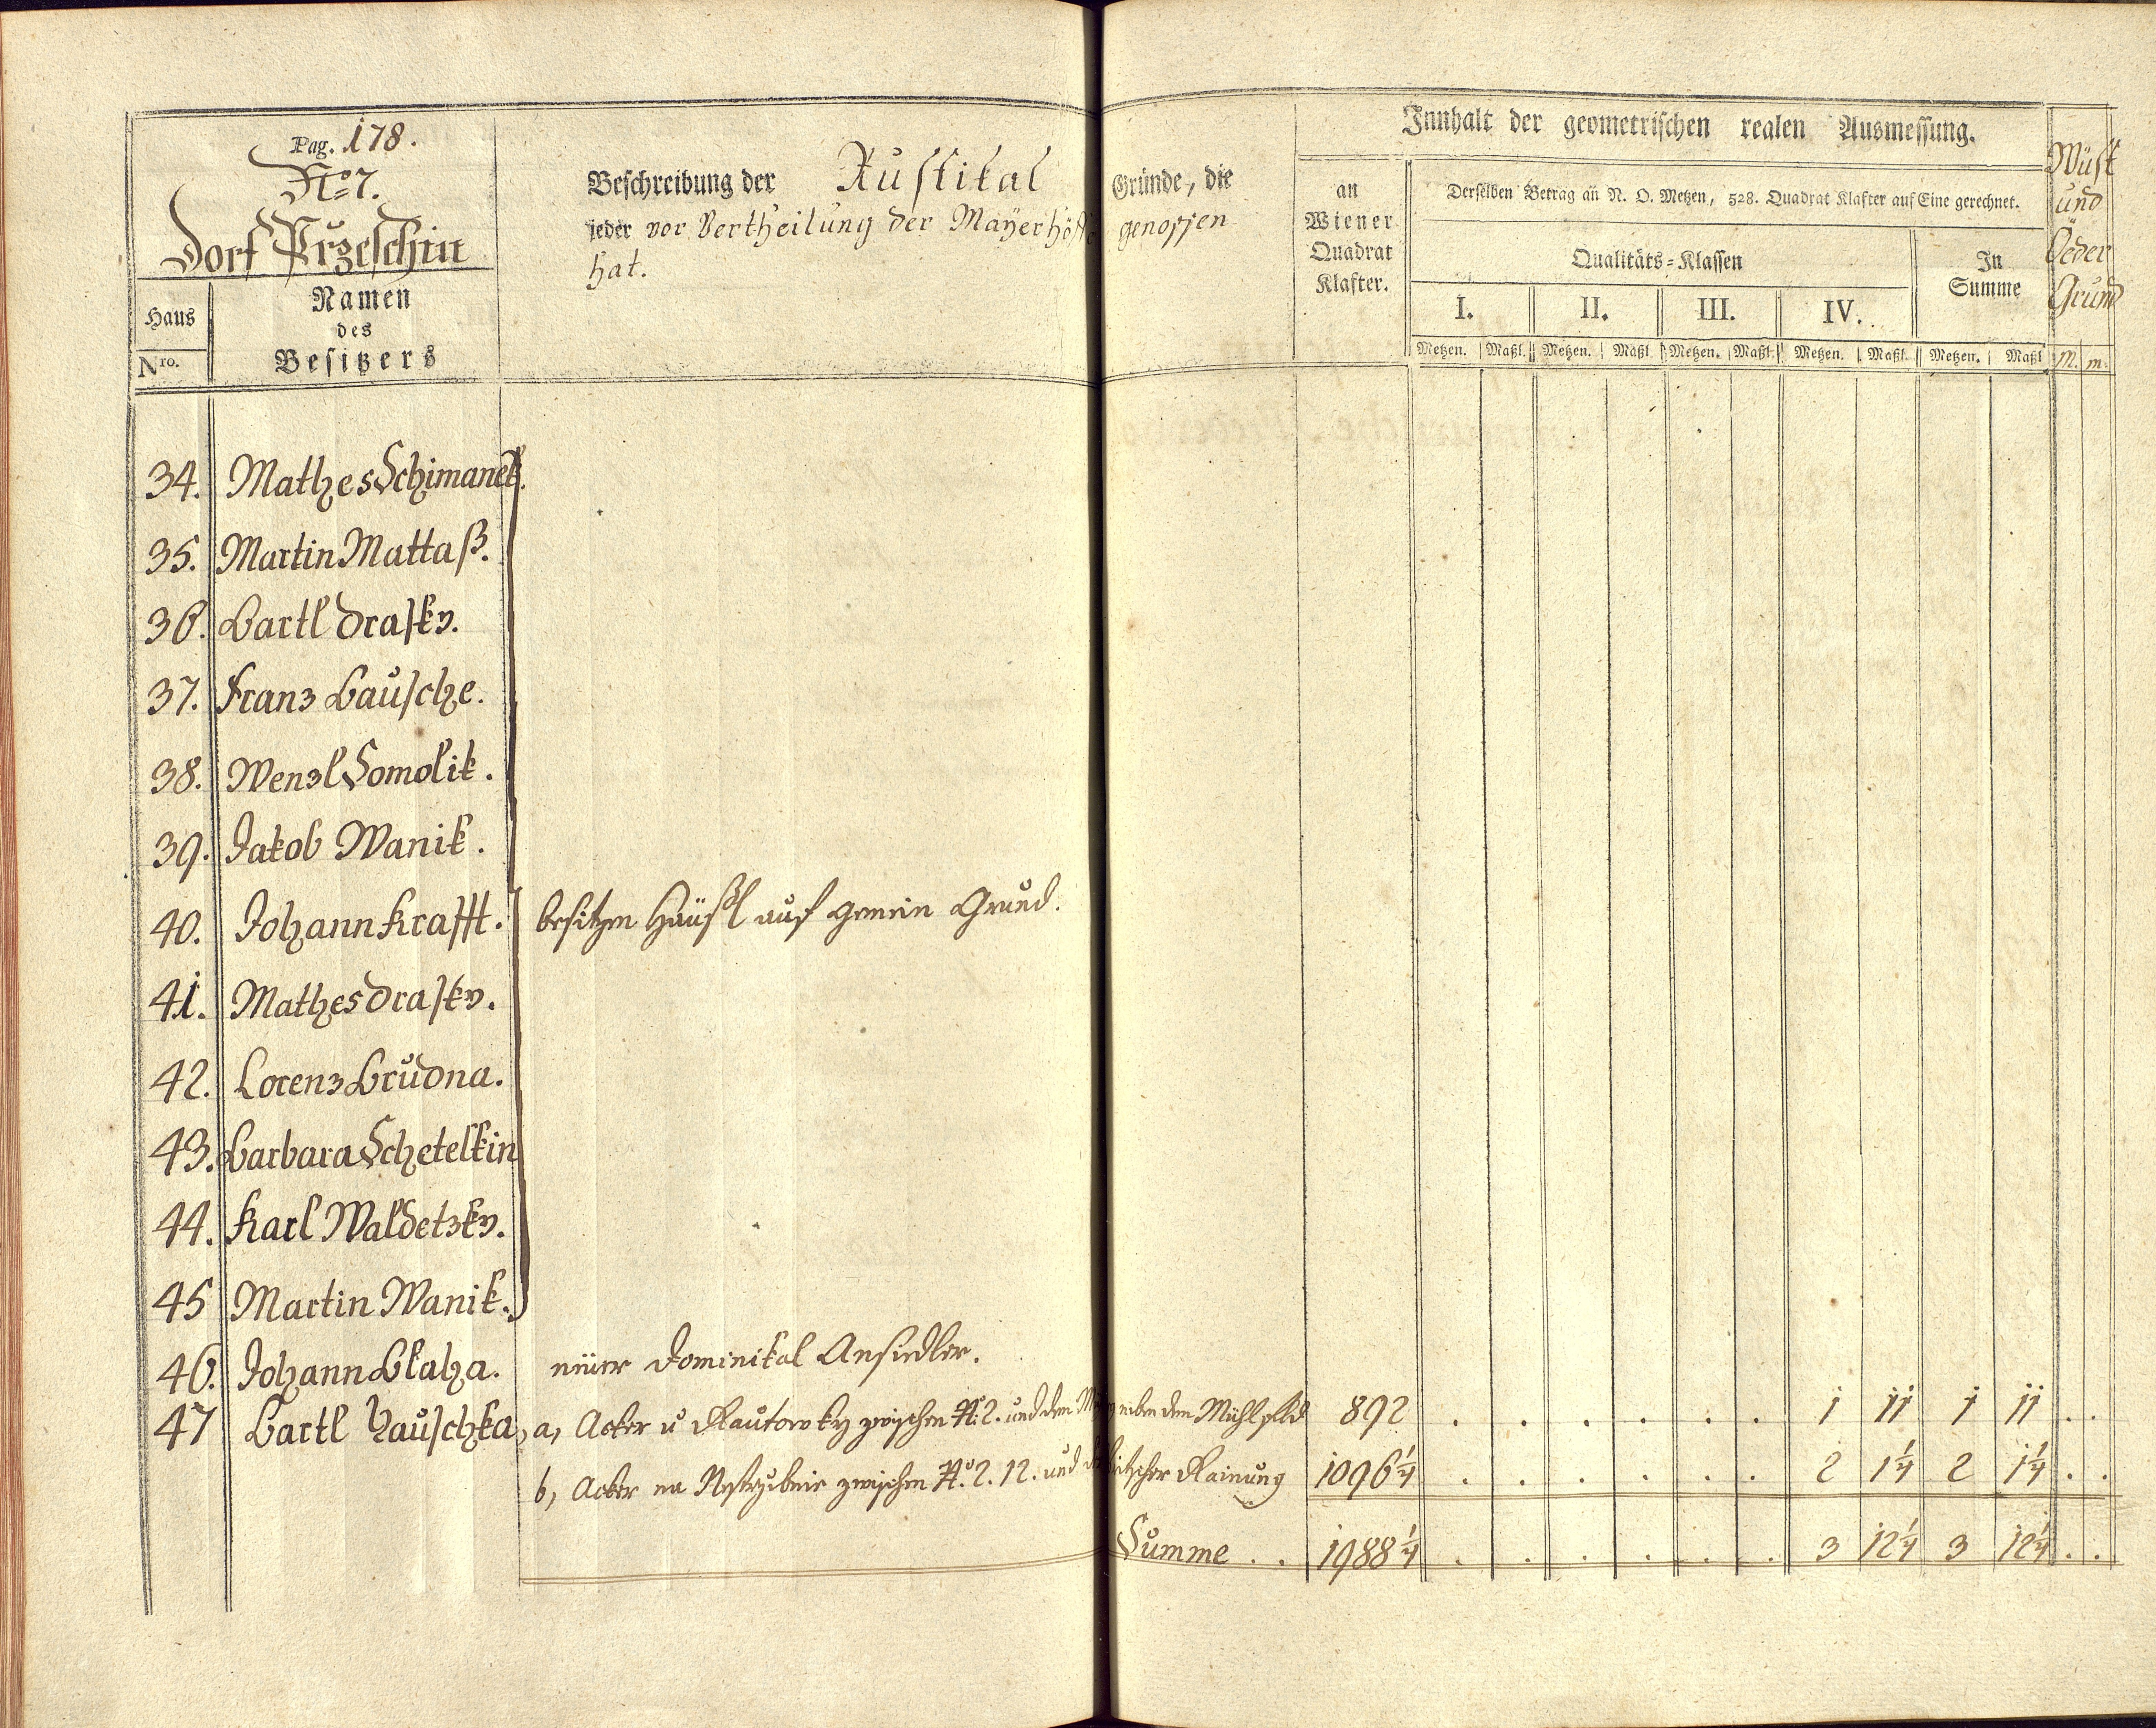 Pag. 178.
No 7.
Dorf Przeschin
Haus
Nro.
Namen
des
Besitzers
Beschreibung der Rustikal Gründe, die
jeder vor Vertheilung der Mayerhöffe genossen
hat.
Innhalt der geometrischen realen Ausmessung.
an
Wiener
Quadrat
Klafter.
Derselben Betrag an N. O. Metzen, 528. Quadrat Klafter auf Eine gerechnet.
Qualitäts-Klassen
In
Summe
I. II. III. IV.
Metzen. Maßl. Metzen. Maßl. Metzen. Maßl. Metzen. Maßl. Metzen. Maßl
Wüst
und
Oeder
Grund
M. m.
34. Mathes Schimanek.
35. Martin Mattaß.
36. Bartl Drasky.
37. Franz Bausche.
38. Wenzl Somolik.
39. Jakob Wanik.
40. Johann Krafft. besitzen Häußl auf gemein Grund.
41. Mathes Drasky.
42. Lorenz Brudna.
43. Barbara Schetelkin
44. Karl Waldetzky.
45 Martin Wanik.
46. Johann Blaha. neüer Dominikal Ansiedler.
47 Bartl Hauschka, a, Acker u Rautowky zwischen N. 2. und dem neben dem Mühlfeld 892 . . . . . . 1 11 1 11 . .
b, Acker na zwischen No 2. 12. und Rainung 1096 1/4 . . . . . . 2 1 1/4 2 1 1/4 . .
Summe . . 1988 1/4 . . . . . . 3 12 1/4 3 12 1/4 . .